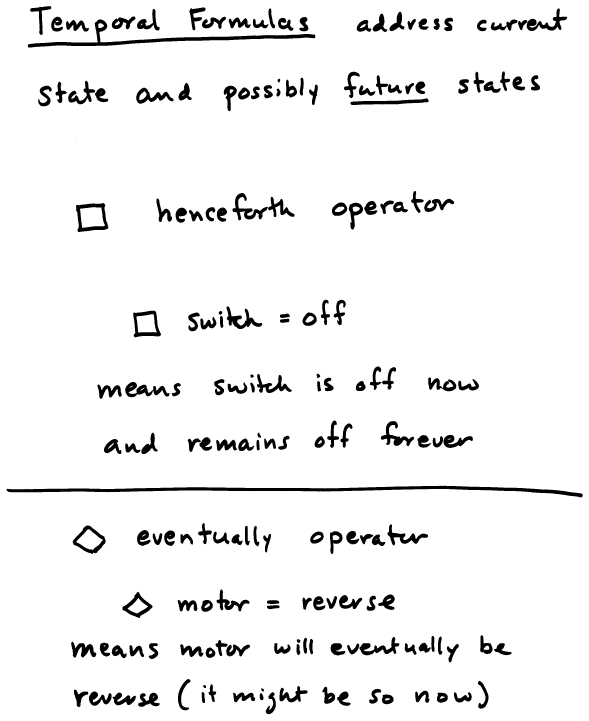 Temporal Formulas address current
state and possibly future states
□ henceforth operator
□ switch = off
means switch is off now
and remains off forever
◇ eventually operator
◇ motor = reverse
means motor will eventually be
reverse (it might be so now)